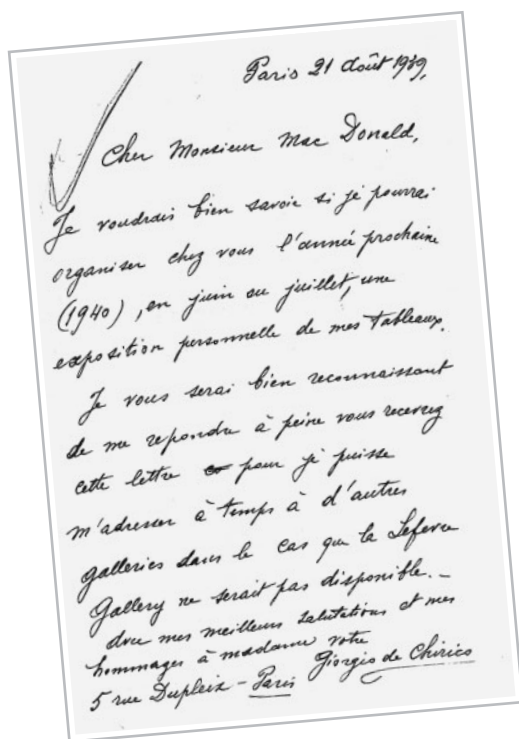 Paris 21 Août 1939,
Cher Monsieur Mac Donald,
Je voudrais bien savoir si je pourrai
organiser chez vous l'année prochaine
(1940), en juin ou juillet, une
exposition personnelle de mes tableaux.
Je vous serai bien reconnaissant
de me repondre à peine vous recevrez
cette lettre pour je puisse
m'adresser à temps à d'autres
galleries dans le cas que la Lefevre
Gallery ne serait pas disponible. —
mes meilleures salutations et mes
hommages à madame votre
Giorgio de Chirico
5 rue Dupleix – Paris